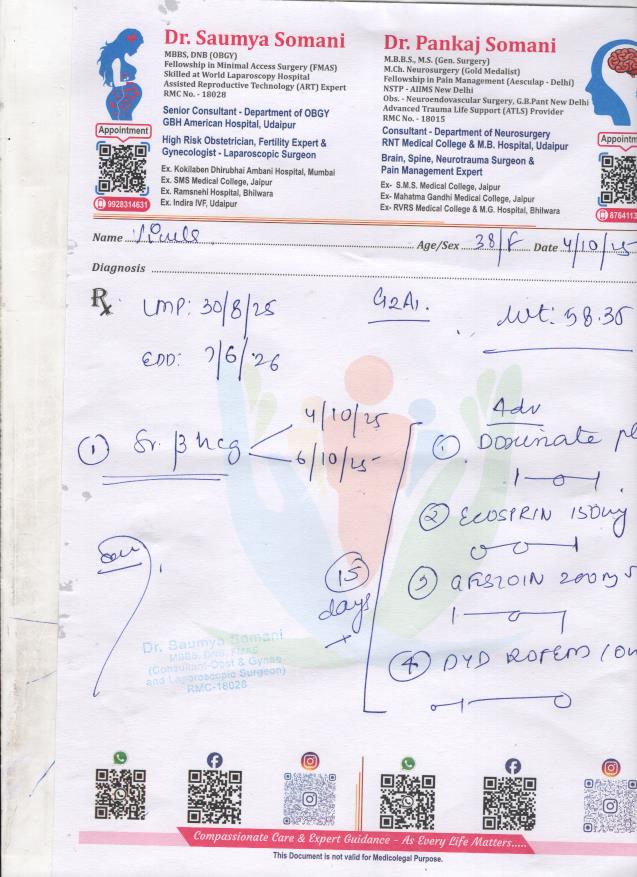 Dr. Saumya Somani
MBBS, DNB (OBGY)
Fellowship in Minimal Access Surgery (FMAS)
Skilled at World Laparoscopy Hospital
Assisted Reproductive Technology (ART) Expert
RMC No. - 18028
Senior Consultant - Department of OBGY
GBH American Hospital, Udaipur
High Risk Obstetrician, Fertility Expert &
Gynecologist - Laparoscopic Surgeon
Ex. Kokilaben Dhirubhai Ambani Hospital, Mumbai
Ex. SMS Medical College, Jaipur
Ex. Ramsnehi Hospital, Bhilwara
Ex. Indira IVF, Udaipur
Appointment
9928314631
Dr. Pankaj Somani
M.B.B.S., M.S. (Gen. Surgery)
M.Ch. Neurosurgery (Gold Medalist)
Fellowship in Pain Management (Aesculap - Delhi)
NSTP - AIIMS New Delhi
Obs. - Neuroendovascular Surgery, G.B.Pant New Delhi
Advanced Trauma Life Support (ATLS) Provider
RMC No. - 18015
Consultant - Department of Neurosurgery
RNT Medical College & M.B. Hospital, Udaipur
Brain, Spine, Neurotrauma Surgeon &
Pain Management Expert
Ex- S.M.S. Medical College, Jaipur
Ex- Mahatma Gandhi Medical College, Jaipur
Ex- RVRS Medical College & M.G. Hospital, Bhilwara
Appointm
8764113
Name Age/Sex 38/F Date 4/10/25
Diagnosis
Rx LMP: 30/8/25 G2A1. Wt: 58.35
EDD: 7/6/26
① Sr. β hcg 4/10/25
6/10/25
Adv
① Doxinate pl
② ECOSPRIN 150mg
③ 200mg
④ DYD
15
days
Dr. Saumya Somani
MBBS, DNB, FMAS
(Consultant-Obst & Gynae
and Laparoscopic Surgeon)
RMC-18028
Compassionate Care & Expert Guidance - As Every Life Matters.....
This Document is not valid for Medicolegal Purpose.